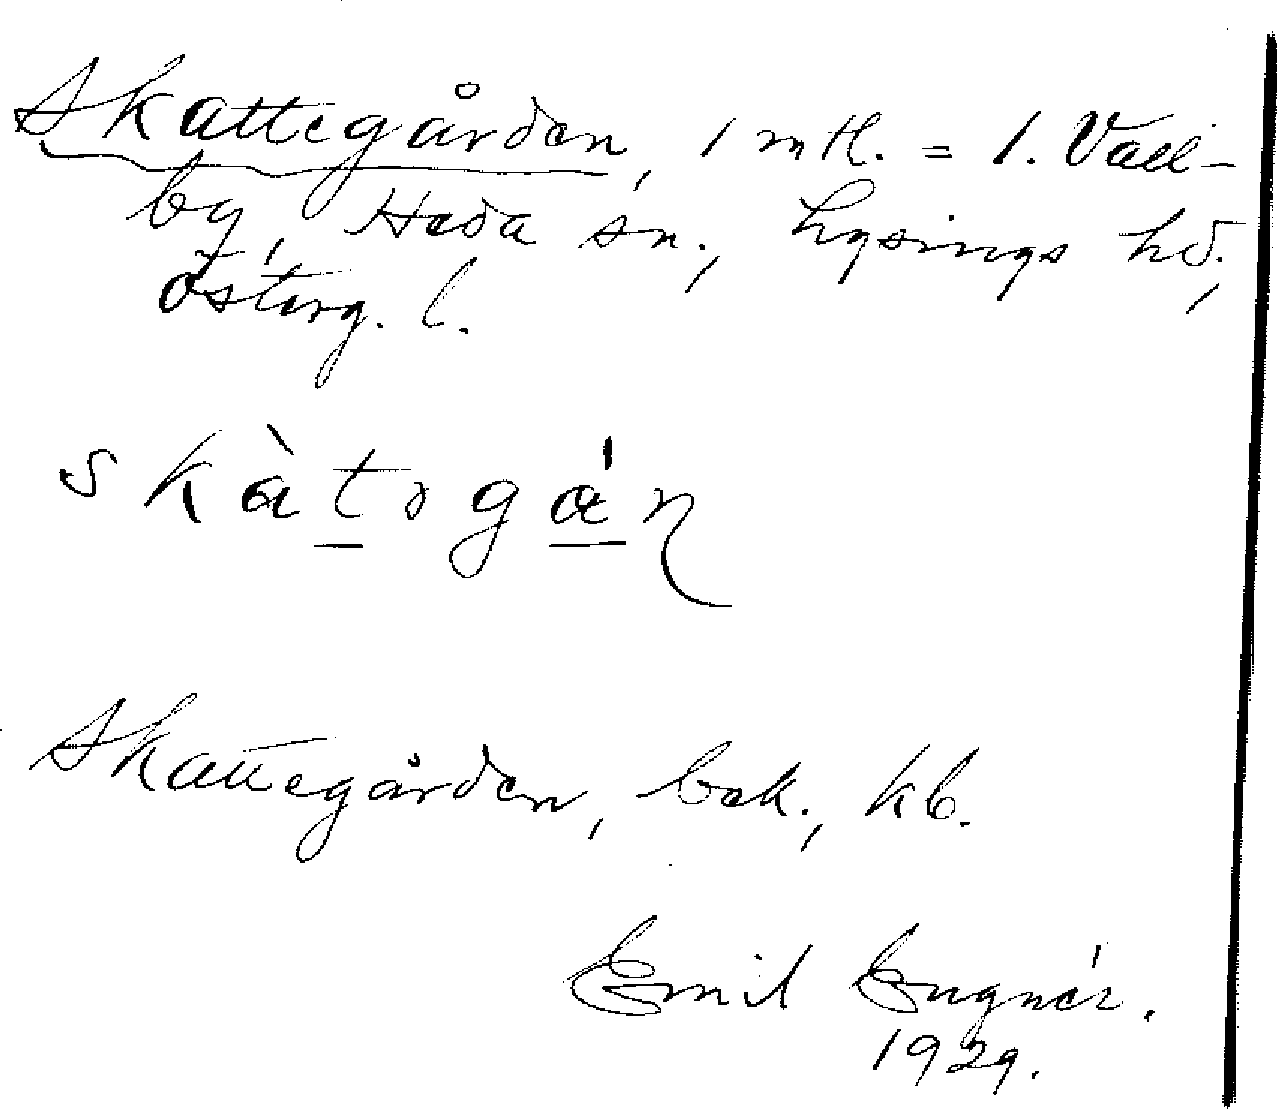 Skattegården, 1 mtl. = 1. Väll-
by, Heda sn., Lysings hd.,
Österg. l.
skàtǝgá̊ɳ
Skattegården, bek., kb.
Emil Eugnér.
1929.